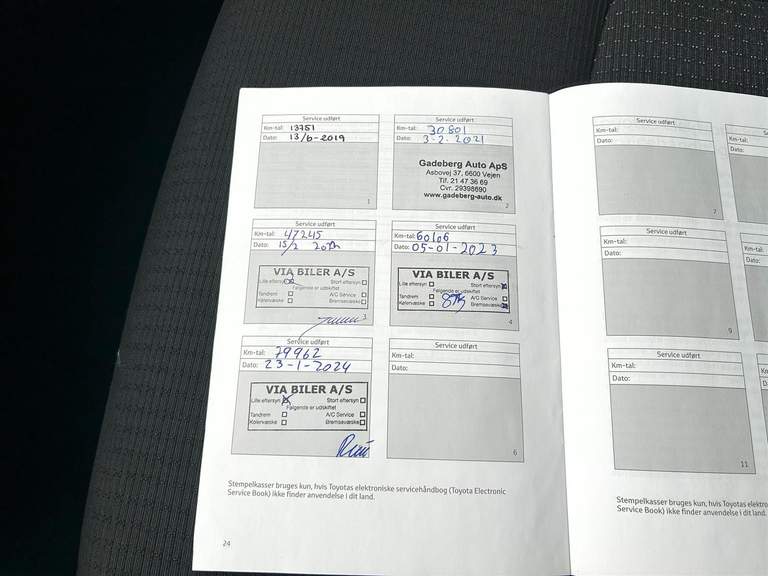 Service udført
Km-tal: 13751
Dato: 13/6-2019
1
Service udført
Km-tal: 30801
Dato: 3-2. 2021
Gadeberg Auto ApS
Asbovej 37, 6600 Vejen
Tlf. 21 47 36 69
Cvr. 29398690
www.gadeberg-auto.dk
2
Service udført
Km-tal: 47245
Dato: 15/2
VIA BILER A/S
Lille eftersyn
Stort eftersyn
Følgende er udskiftet
Tandrem
A/C Service
Kølervæske
Bremsevæske
3
Service udført
Km-tal: 60106
Dato: 05-01-2023
VIA BILER A/S
Lille eftersyn
Stort eftersyn
Følgende er udskiftet
Tandrem
A/C Service
Kølervæske
Bremsevæske
4
Service udført
Km-tal: 79962
Dato: 23-1-2024
VIA BILER A/S
Lille eftersyn
Stort eftersyn
Følgende er udskiftet
Tandrem
A/C Service
Kølervæske
Bremsevæske
Service udført
Km-tal:
Dato:
6
Stempelkasser bruges kun, hvis Toyotas elektroniske servicehåndbog (Toyota Electronic
Service Book) ikke finder anvendelse i dit land.
24
Service udført
Km-tal:
Dato:
7
Service udført
Km-tal:
Dato:
9
Service udført
Km-tal:
Dato:
11
Km-tal:
Dato:
Km-tal:
Dato:
Stempelkasser bruges kun, hvis Toyotas elektron
Service Book) ikke finder anvendelse i dit land.